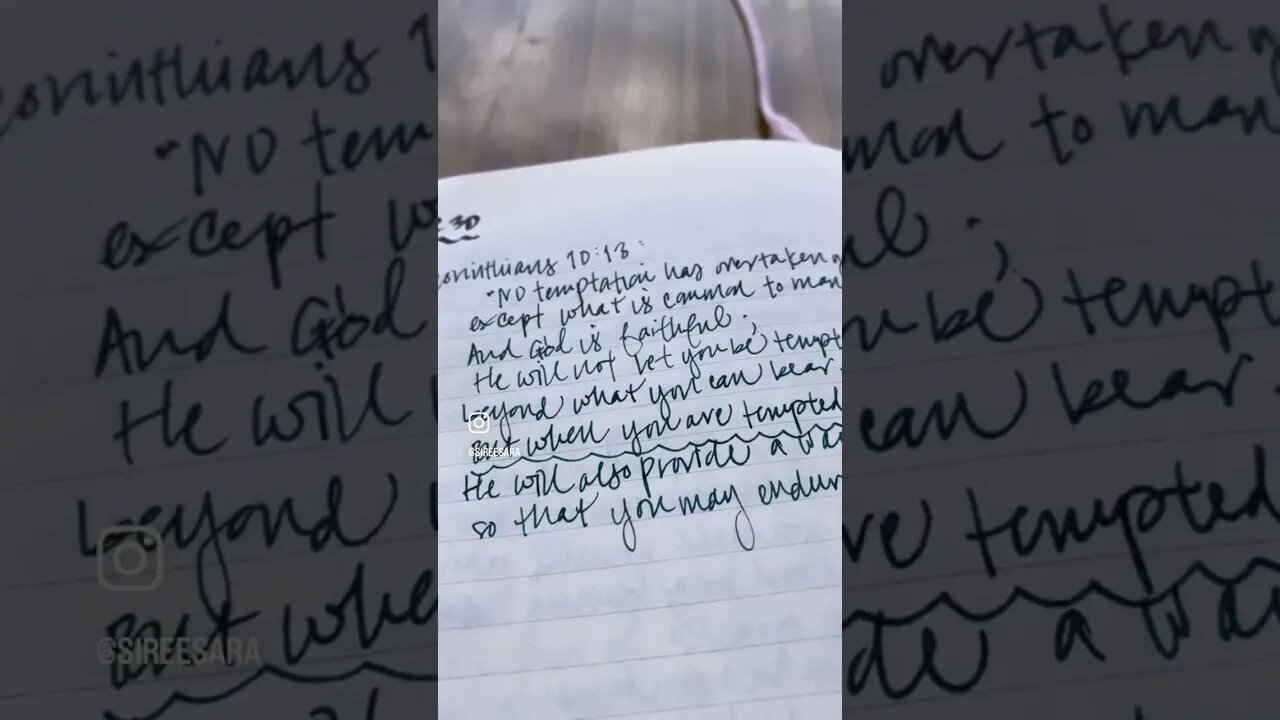 30
orinthians 10:13:
"NO temptation has overtaken
except what is common to man
And God is faithful.;
He will not let you be tempt
beyond what you can bear.
But when you are tempted
@SIREESARA
He will also provide a wa
so that you may endur